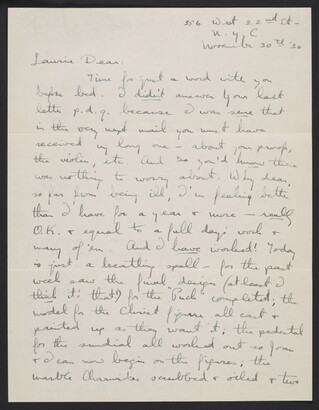 356 West 22nd St -
N.Y.C.
November 30th '20
Laurie Dear:
Time for just a word with you
before bed. I didn't answer your last
letter p.d.q. because I was sure that
in the very next mail you must have
received my long one - about your proofs,
the violin, etc. And so you'd know there
was nothing to worry about. Why dear,
so far from being ill, I'm feeling better
than I have for a year & more - really
O.K. & equal to a full day's work &
many of 'em. And I have worked! Today
is just a breathing spell - for the past
week saw the final designs (at least I
think it's that!) for the Puck completed; the
model for the Christ figure all cast &
painted up as they want it; the pedestal
for the sundial all worked out so Fran
& I can now begin on the figures; the
marble scrubbed & oiled & two